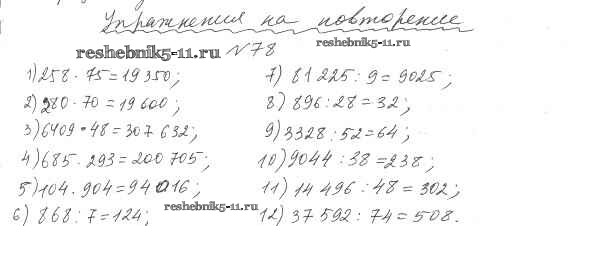 Упражнения на повторение
reshebnik5-11.ru
reshebnik5-11.ru
№78
1) 258 · 75 = 19 350;
2) 280 · 70 = 19 600;
3) 6409 · 48 = 307 632;
4) 685 · 293 = 200 705;
5) 104 · 904 = 94 016;
6) 868 : 7 = 124;
7) 81 225 : 9 = 9025;
8) 896 : 28 = 32;
9) 3328 : 52 = 64;
10) 9044 : 38 = 238;
11) 14 496 : 48 = 302;
12) 37 592 : 74 = 508.
reshebnik5-11.ru